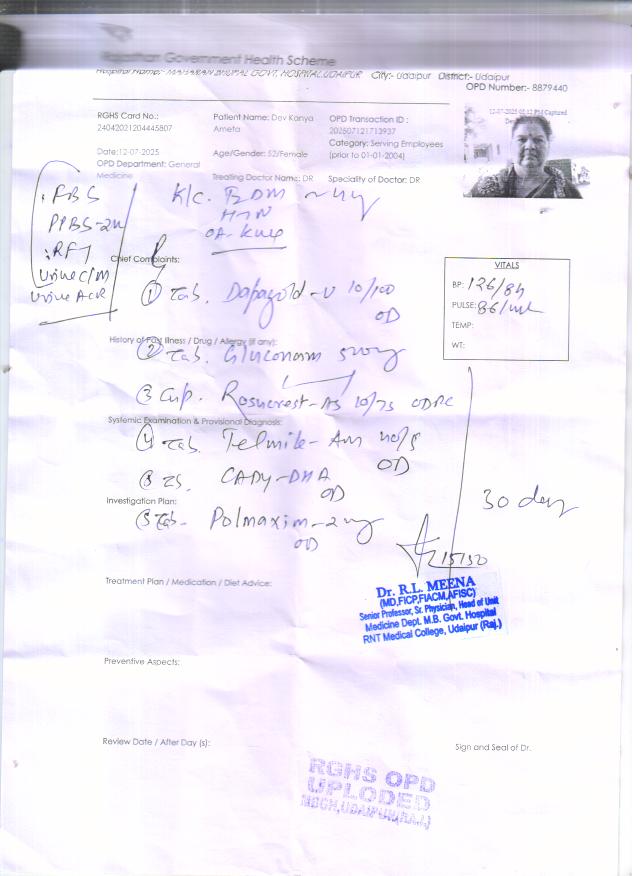 Rajasthan Government Health Scheme
Hospital Name:- MAHARANA BHUPAL GOVT. HOSPITAL,UDAIPUR City:- Udaipur District:- Udaipur
OPD Number:- 8879440
RGHS Card No.:
24042021204445807
Patient Name: Dev Kanya
Ameta
OPD Transaction ID :
202507121713937
12-07-2025 05:12 PM Captured
Date:12-07-2025
Age/Gender: 52/Female
Category: Serving Employees
(prior to 01-01-2004)
OPD Department: General
Medicine
Treating Doctor Name: DR
Speciality of Doctor: DR
FBS
PPBS-2h
RFT
Urine C/M
Urine ACR
K/c. T2DM ~ 4y
HTN
OA-knee
Chief Complaints:
① Tab. Dapagold-V 10/100
OD
VITALS
BP: 126/84
PULSE: 86/
TEMP:
WT:
History of Past Illness / Drug / Allergy (if any):
② Tab. Gluconorm 500mg
③ Cap. Rosucrest-AS 10/75 OD
Systemic Examination & Provisional Diagnosis:
④ Tab. Telmite-Am 40/5
OD
CADY-DHA
OD
Investigation Plan:
⑤ Tab- Polmaxim-2mg
OD
30 day
Treatment Plan / Medication / Diet Advice:
Dr. R.L. MEENA
(MD,FICP,FIACM,AFISC)
Senior Professor, Sr. Physician, Head of Unit
Medicine Dept. M.B. Govt. Hospital
RNT Medical College, Udaipur (Raj.)
Preventive Aspects:
Review Date / After Day (s):
Sign and Seal of Dr.
RGHS OPD
UPLODED
MBGH,UDAIPUR(RAJ.)